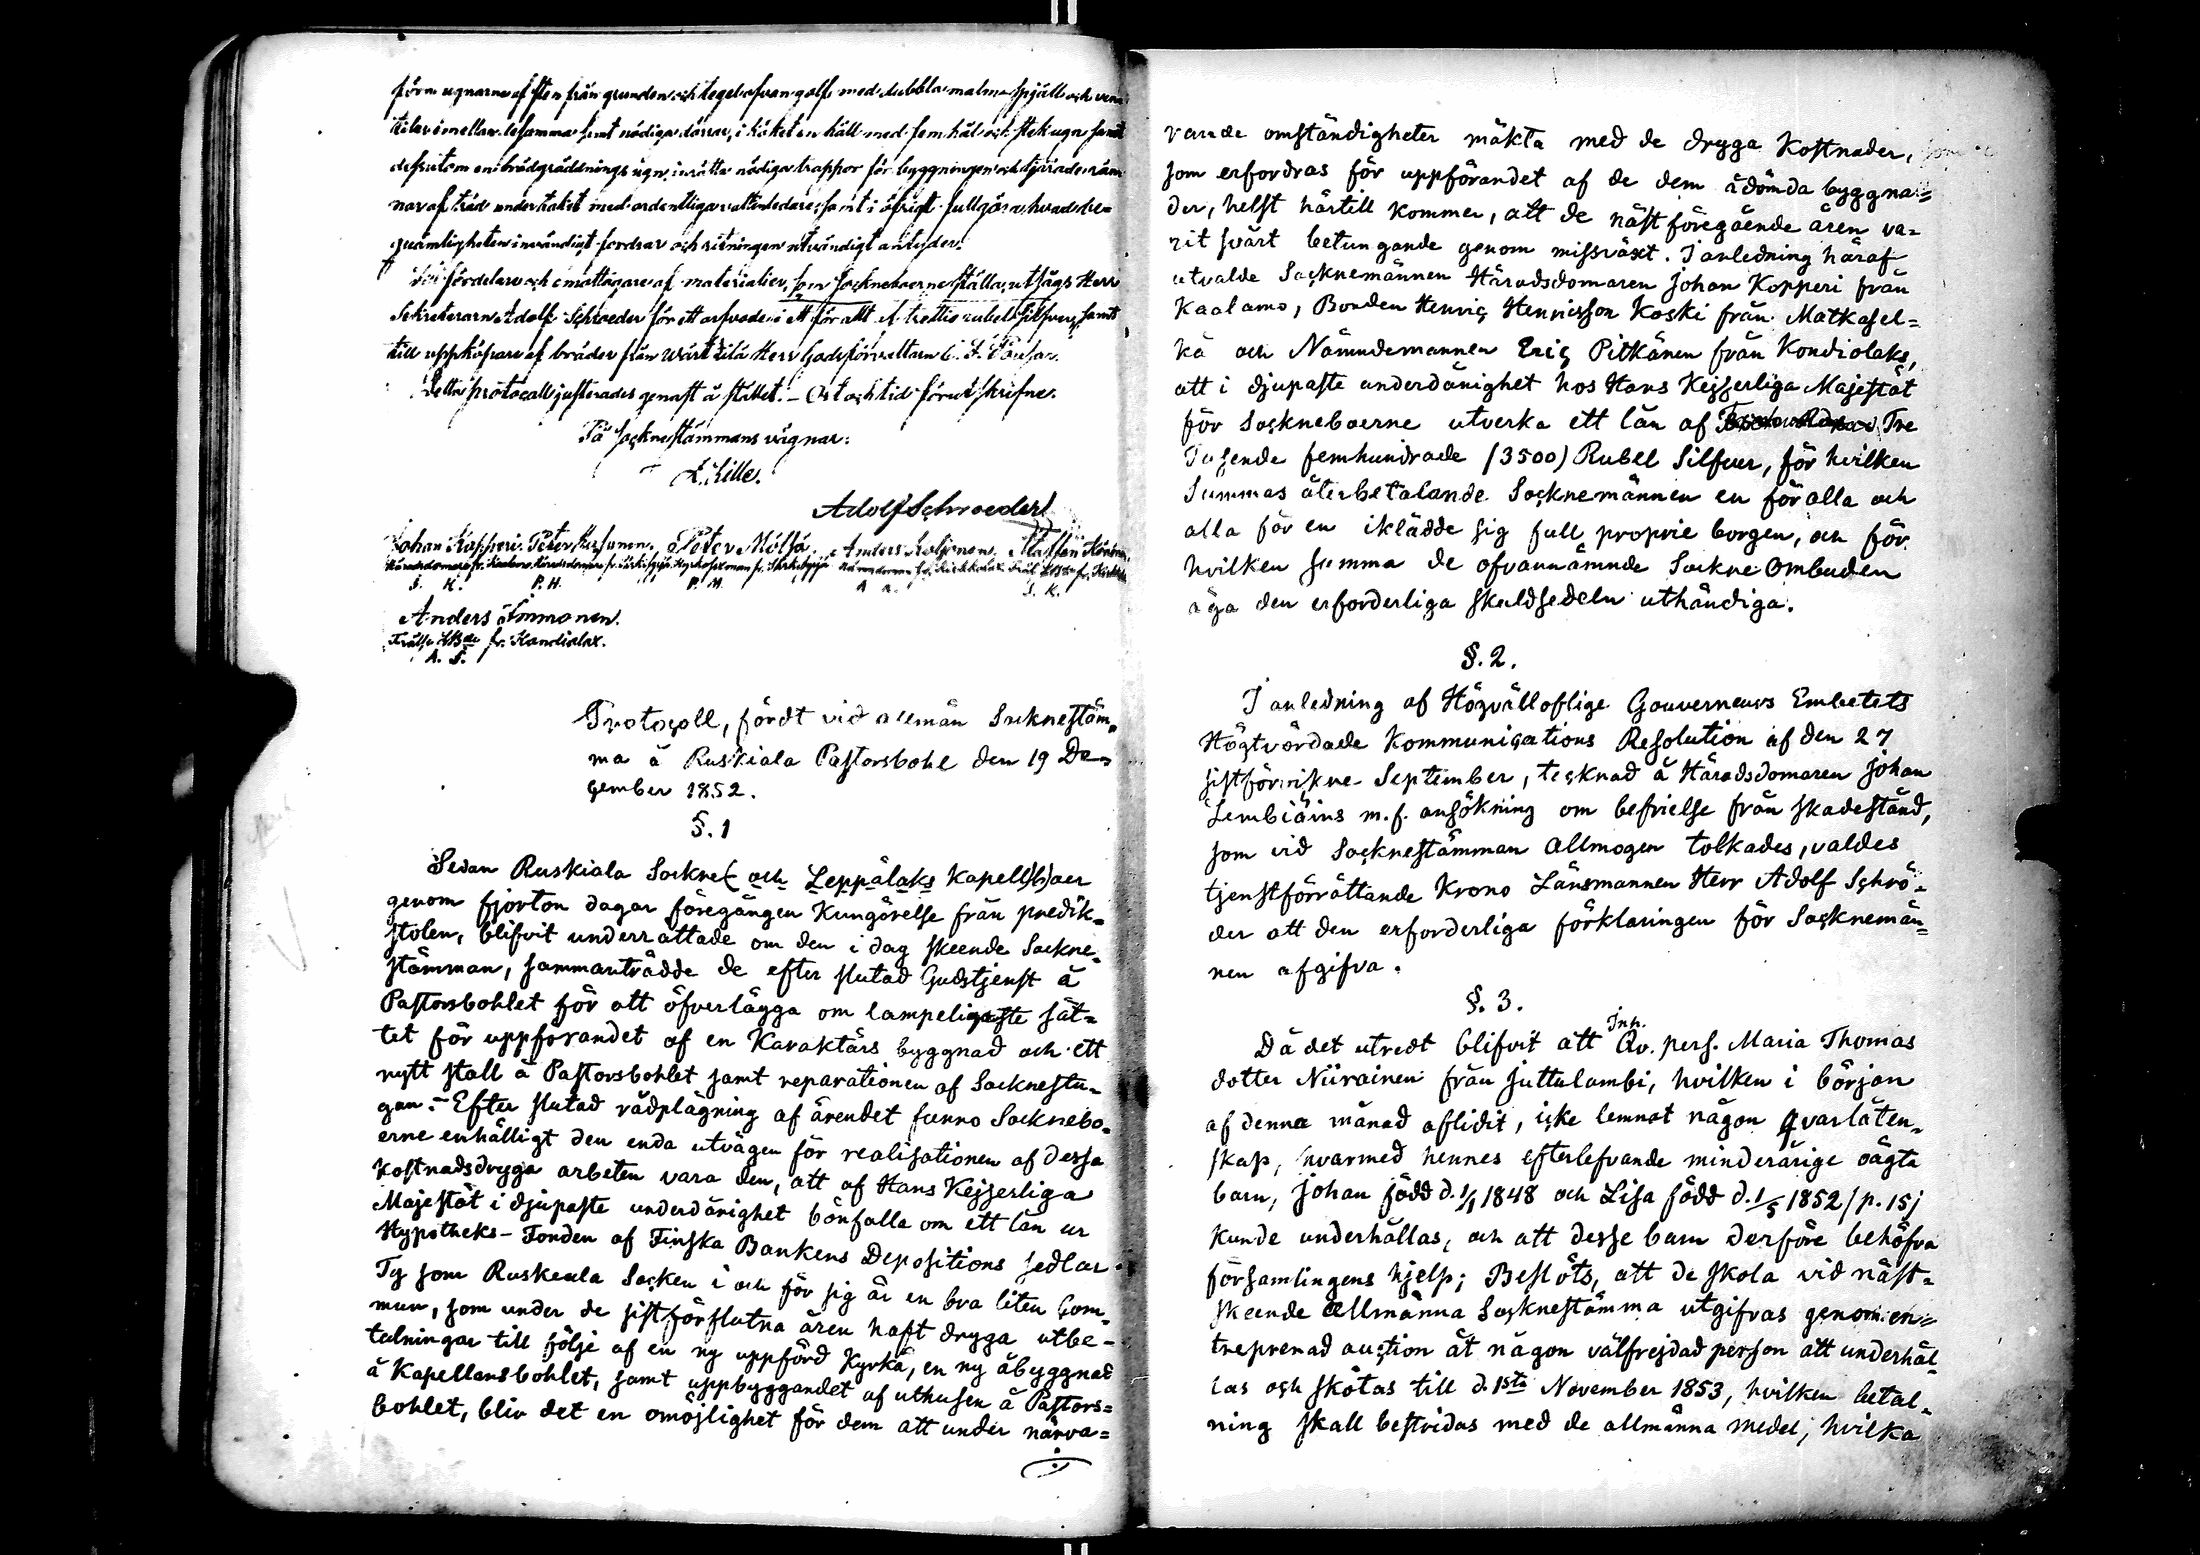 för m ugnarne af sten från grunden och tegel ofvan golf, med dubbla malm spjäll och ven-
tiler i mellan desamma samt nödiga dörrar, i köket en häll med fem hål och stekugn samt
dessutom en brödgräddnings ugn, inrätta nödiga trappor för byggningen och tjärade rän
nor af träd under taket med ordentliga vattenledare, samt i öfrigt fullgöra hvad be=
quämligheten invändigt fordrar och ritningen utvändigt antyder.
Till fördelare och emottagare af materialier, som Sockneboerne ställa, utsågs Herr
Sekreteraren Adolf Schroeder för ett arfvode i ett för allt af trettio rubel Silfver, samt
till uppköpare af bräder från Wärtsilä Herr Gods förvaltaren
Detta protocoll justerades genast å stället. – Ort och tid förut skrifne.
På Sockne stämmans vägnar:
Adolf Schroeder
Johan Kopperi. Peter Peter Möltsä. Anders Staffan
J. K. P. H. P. M. A. S. K.
Anders Immonen.
fr. Kondialax.
A. I.
Protocoll, fördt vid allmän Socknestäm=
ma å Ruskiala Pastorsbohl den 19 De=
cember 1852.
§. 1
Sedan Ruskiala Sockne( och Leppälaks Kapell)b)oer
genom fjorton dagar föregången Kungörelse från predik=
stolen, blifvit underrättade om den i dag skeende Sockne=
stämman, sammanträdde de efter slutad Gudstjenst å
Pastorsbohlet för att öfverlägga om lämpeligaste sät=
tet för uppförandet af en Karaktärs byggnad och ett
nytt stall å Pastorsbohlet samt reparationen af Socknestu=
gan. – Efter slutad rådplägning af ärendet funno Socknebo=
erne enhälligt den enda utvägen för realisationen af dessa
kostnadsdryga arbeten vara den, att af Hans Kejserliga
Majestät i djupaste underdånighet bönfalla om ett lån ur
Hypotheks-Fonden af Finska Bankens Depositions sedlar.
Ty som Ruskeala Socken i och för sig är en bra liten Com=
mun, som under de sistförflutna åren haft dryga utbe=
talningar till följe af en ny uppförd Kyrka, en ny åbyggnad
å Kapellansbohlet, samt uppbyggandet af uthusen å Pastors=
bohlet, blir det en omöjlighet för dem att under närva=
rande omständigheter mäkta med de dryga Kostnader,
som erfordras för uppförandet af de dem ådömda byggna=
der, helst härtill kommer, att de nästföregående åren va=
rit svårt betungande genom missväxt. I anledning häraf
utvalde Socknemännen Häradsdomaren Johan Kopperi från
Kaalamo, Bonden Henric Henricsson Koski från Matkasel=
kä och Nämndemannen Eric Pitkänen från Kondiolaks,
att i djupaste underdånighet hos Hans Kejserliga Majestät
för Sockneboerne utverka ett lån af Tre
Tusende femhundrade (3500) Rubel Silfver, för hvilken
Summas återbetalande Socknemännen en för alla och
alla för en iklädde sig full proprie borgen, och för
hvilken summa de ofvannämnde Sockne Ombuden
äga den erforderliga skuldsedeln uthändiga.
§. 2.
I anledning af Högvälloflige Gouverneurs Embetets
Högtvördade Kommunications Resolution af den 27
sistförvikne September, tecknad å Häradsdomaren Johan
Lembiäins m.fl. ansökning om befrielse från skadestånd,
som vid Socknestämman allmogen tolkades, valdes
tjenstförrättande Krono Länsmannen Herr Adolf Schrö=
der att den erforderliga förklaringen för Socknemän=
nen afgifva.
§. 3.
Då det utredt blifvit att Inh. Qv. pers. Maria Thomas
dotter Niirainen från Juttulambi, hvilken i början
af denna månad aflidit, icke lemnat någon qvarlåten=
skap, hvarmed hennes efterlefvande minderårige oägta
barn, Johan född d. 1/1 1848 och Lisa född d. 1/5 1852 /p. 15/
kunde underhållas, och att desse barn derföre behöfva
församlingens hjelp; Beslöts, att de skola vid näst=
skeende allmänna Socknestämma utgifvas genom en=
treprenad auction åt någon välfrejdad person att underhål=
las och skötas till d. 1sta November 1853, hvilken betal=
ning skall bestridas med de allmänna medel, hvilka